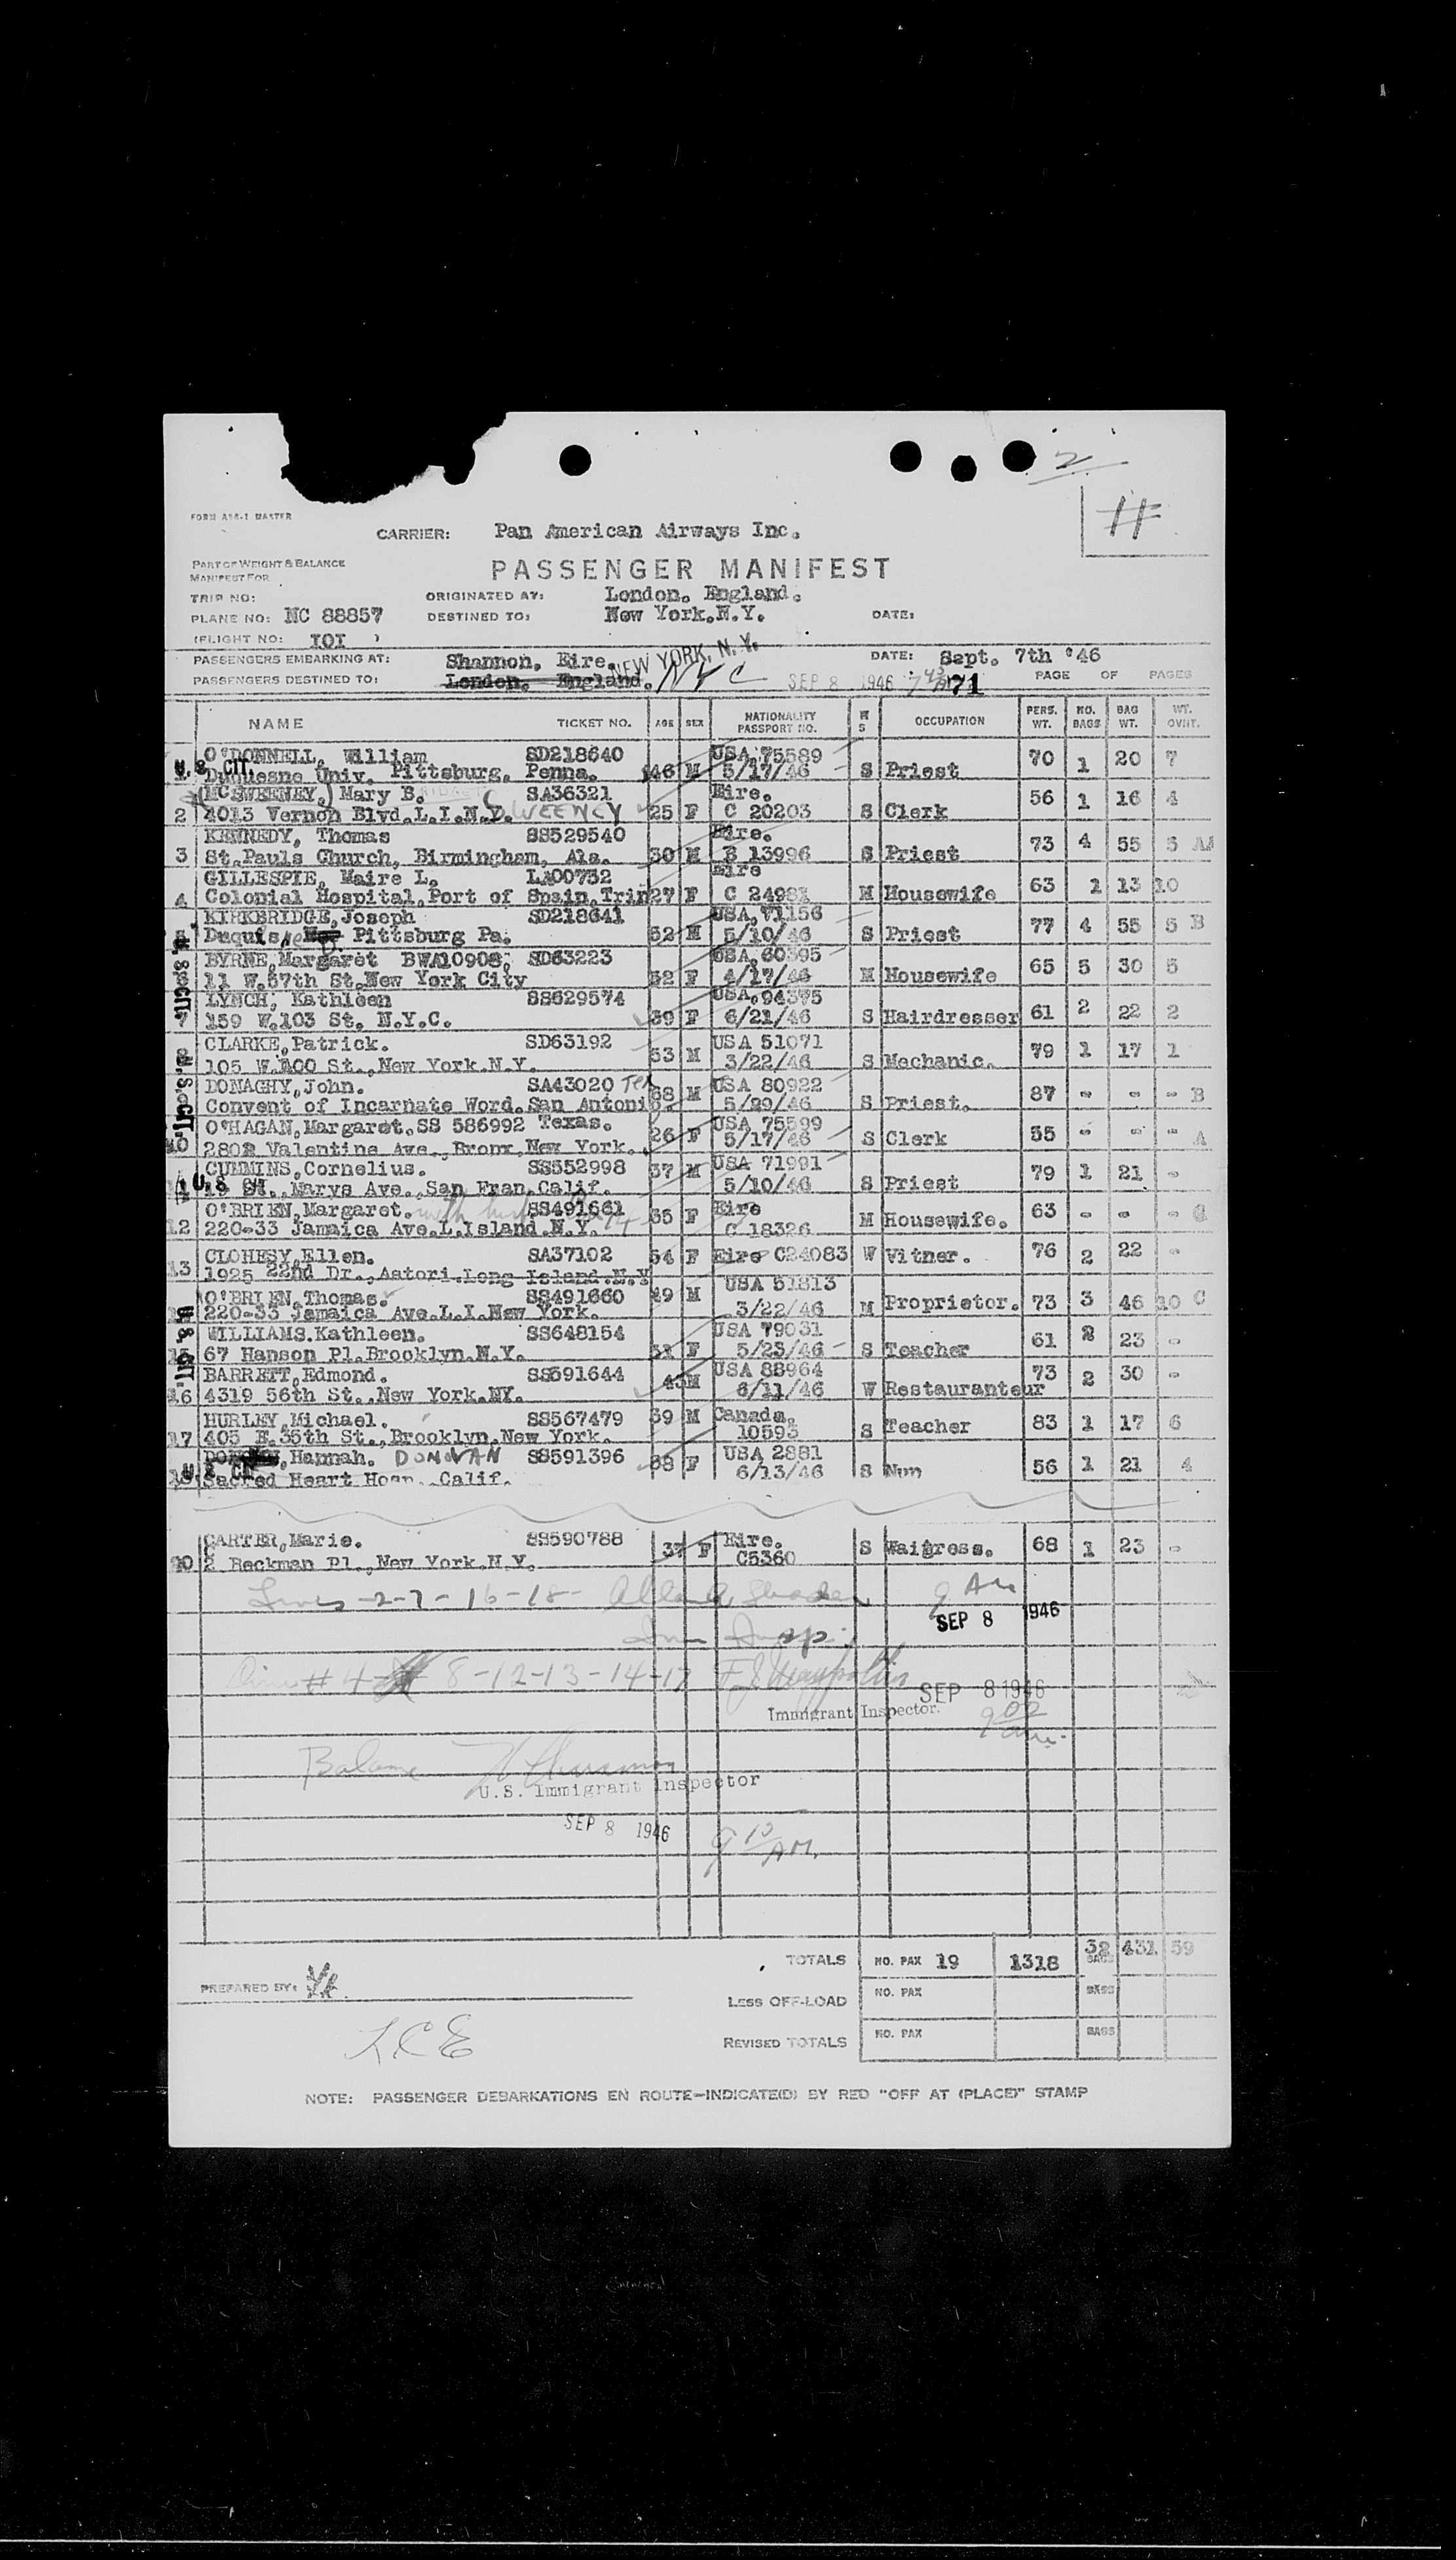 2
FORM ASE-1 MASTER
CARRIER: Pan American Airways Inc.
PART OF WEIGHT & BALANCE
MANIFEST FOR
PASSENGER MANIFEST
TRIP NO: ORIGINATED AT: London. England.
PLANE NO: NC 88857 DESTINED TO: New York.N.Y. DATE:
(FLIGHT NO: IOI )
PASSENGERS EMBARKING AT: Shannon. Eire. NEW YORK, N. Y. DATE: Sept. 7th '46
PASSENGERS DESTINED TO: London. England. NYC SEP 8 1946 7 45 71 PAGE OF PAGES
NAME TICKET NO. AGE SEX NATIONALITY PASSPORT NO. M S OCCUPATION PERS. WT. NO. BAGS BAG WT. WT. OVHT.
O'DONNELL, William SD218640 USA, 75589 70 1 20 7
U. S. CIT.
1 Duquesne Univ. Pittsburg. Penna. 46 M 5/17/46 S Priest
(MC SWEENEY,) Mary B. SA36321 Eire. 56 1 16 4
2 4013 Vernon Blvd.L.I.N.Y. SWEENEY 25 F C 20203 S Clerk
KENNEDY, Thomas SS529540 Eire. 73 4 55 5
3 St.Pauls Church, Birmingham, Ala. 30 M B 13996 S Priest
GILLESPIE, Maire L. LA00732 Eire 63 1 13 10
4 Colonial Hospital,Port of Spain,Trin 27 F C 24981 M Housewife
KIRKBRIDGE,Joseph SD218641 USA,71156 77 4 55 5 B
Duquis Pittsburg Pa. 52 M 5/10/46 S Priest
BYRNE,Margaret BWA10908; SD63223 USA,60395 65 5 30 5
11 W.57th St.New York City 32 F 4/17/46 M Housewife
LYNCH, Kathleen SS629574 USA,94375 61 2 22 2
7 159 W.103 St. N.Y.C. 39 F 6/21/46 S Hairdresser
CLARKE,Patrick. SD63192 USA 51071 79 1 17 1
105 W.100 St.,New York.N.Y. 53 M 3/22/46 S Mechanic.
DONAGHY,John. SA43020 Tex USA 80922 87 - - - B
Convent of Incarnate Word.San Antonio. 68 M 5/29/46 S Priest.
O'HAGAN,Margaret.SS 586992 Texas. USA 75599 55 - - - A
10 2802 Valentine Ave.,Bronx,New York. 26 F 5/17/46 S Clerk
CUMMINS,Cornelius. SS552998 37 M USA 71991 79 1 21 -
U. S. CIT. St.,Marys Ave.,San Fran.Calif. 5/10/46 S Priest
O'BRIEN,Margaret. SS491661 55 F Eire 63 - - - C
12 220-33 Jamaica Ave.L.Island.N.Y. C 18326 M Housewife.
CLOHESY,Ellen. SA37102 54 F Eire C24083 W Vitner. 76 2 22 -
13 1925 22nd Dr.,Astori.Long Island.N.Y
O'BRIEN,Thomas. SS491660 49 M USA 51813 73 3 46 10 C
220-33 Jamaica Ave.L.I.New York. 3/22/46 M Proprietor.
WILLIAMS.Kathleen. SS648154 USA 79031 61 2 23 -
15 67 Hanson Pl.Brooklyn.N.Y. F 5/23/46 S Teacher
BARRETT,Edmond. SS691644 USA 88964 73 2 30 -
16 4319 56th St.,New York.NY. 43 M 6/11/46 W Restauranteur
HURLEY,Michael. SS567479 39 M Canada, 83 1 17 6
17 405 E.35th St.,Brooklyn.New York. 10593 S Teacher
,Hannah. DONOVAN SS591396 38 F USA 2881 56 1 21 4
18 Sacred Heart Hosp. .Calif. 6/13/46 S Nun
CARTER,Marie. SS590788 37 F Eire. S Waigress. 68 1 23 -
20 2 Beckman Pl.,New York.N.Y. C5360
Lines -2-7-16-18- 9 AM
SEP 8 1946
Imm Insp.
# 4 8-12-13-14-17
SEP 8 1946
Immigrant Inspector. 9 00 am.
Balance
U.S. Immigrant Inspector
SEP 8 1946 9 10 AM.
TOTALS NO. PAX 19 1318 32 BAGS 431 59
PREPARED BY:
LESS OFF-LOAD NO. PAX BAGS
REVISED TOTALS NO. PAX BAGS
L.C.E
NOTE: PASSENGER DEBARKATIONS EN ROUTE-INDICATE(D) BY RED "OFF AT (PLACE)" STAMP